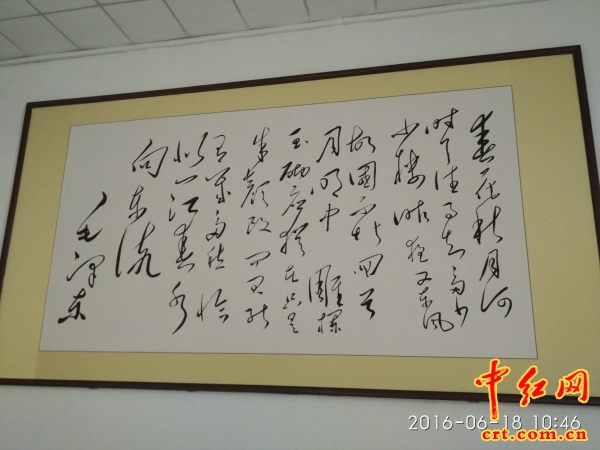 春花秋月何
时了往事知多少
小楼昨夜又东风
故國不堪回首
月明中 雕欄
玉砌应犹在只是
朱颜改 问君能
有几多愁 恰
似一江春水
向东流
毛泽东
中红网
2016-06-18 10:46
crt.com.cn